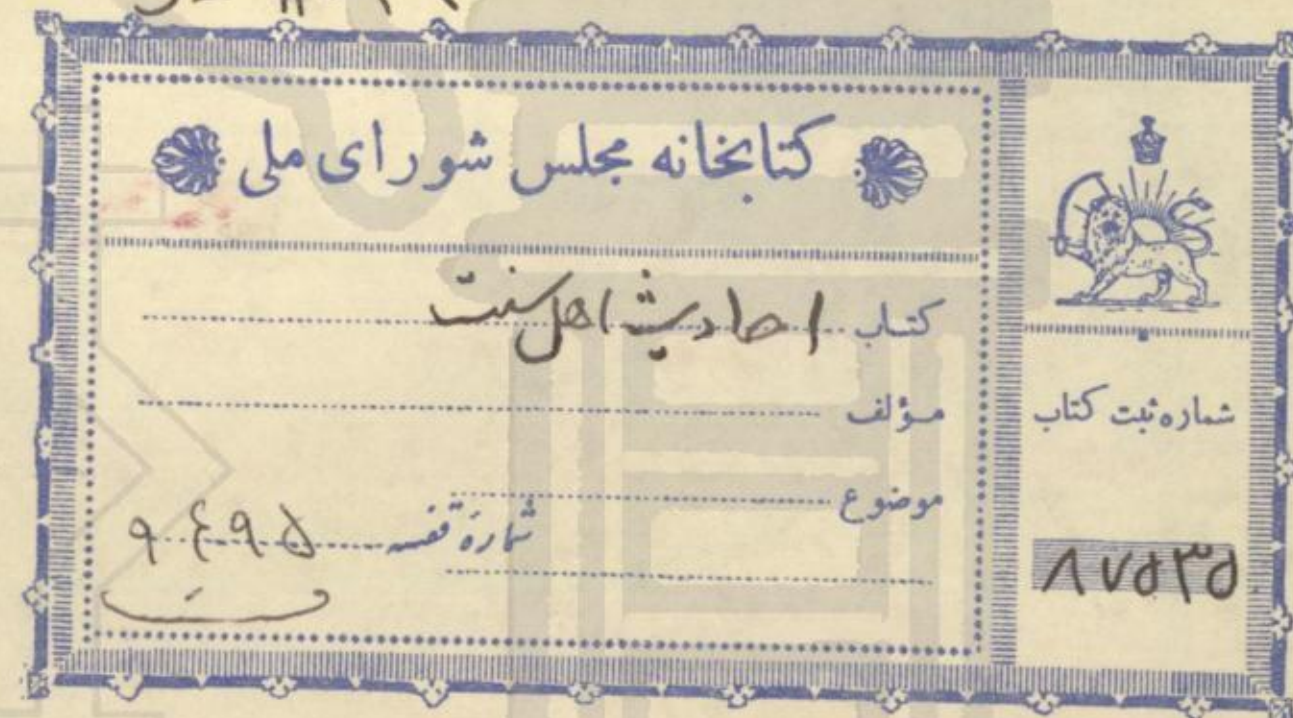 کتابخانه مجلس شورای ملی
کتاب احادیث اهل سنت
مؤلف
موضوع
شمارهٔ قفسه ۹۴۹۵
شماره ثبت کتاب
۸۷۵۳۵